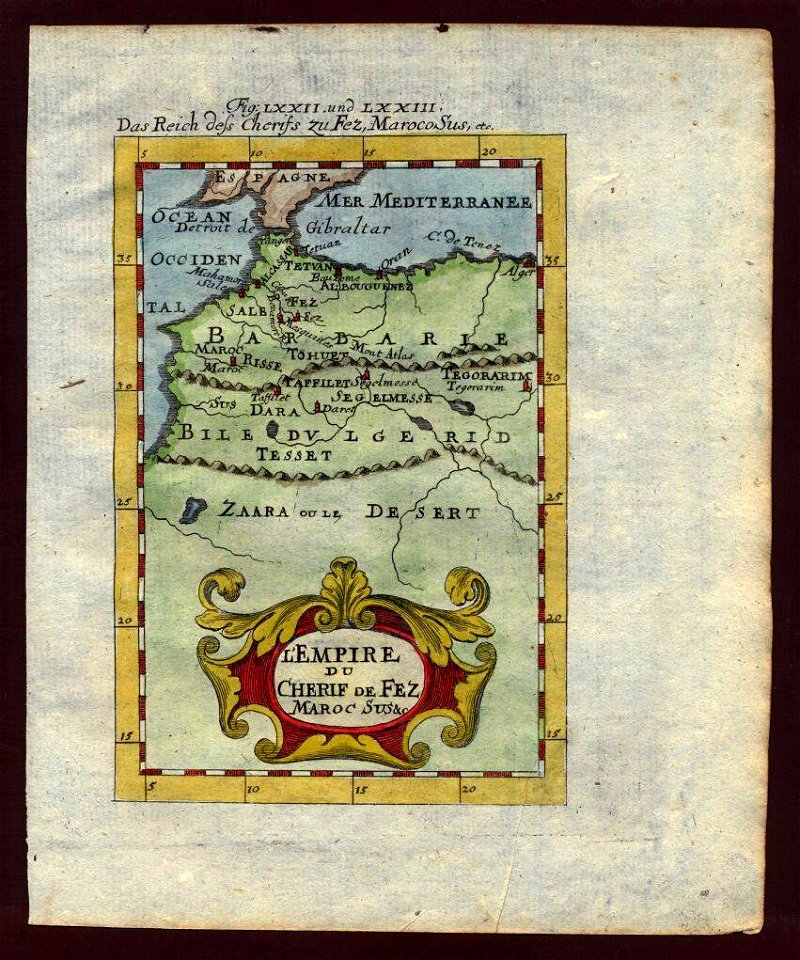 Fig: LXXII. und LXXIII.
Das Reich deſs Cherifs zu Fez, Maroco Sus, etc.
5 10 15 20
ESPAGNE
MER MEDITERRANEE
OCEAN
Detroit de Gibraltar
OCCIDEN
TAL
Tanger
Tetuan
C. de Tenez
35 35
TETVAN
Oran
Alger
ALBOUGUENEZ
SALE
FEZ
Fez
BARBARIE
MAROC
Maroc
RISSE
Mont Atlas
30 30
TAFFILET
Segelmesse
TEGORARIM
Tegorarim
Taffilet
SEGELMESSE
SUS
DARA
Daret
BILEDVLGERID
TESSET
25 25
ZAARA OU LE DESERT
20 20
L'EMPIRE
DU
CHERIF DE FEZ
MAROC SUS &c
15 15
5 10 15 20